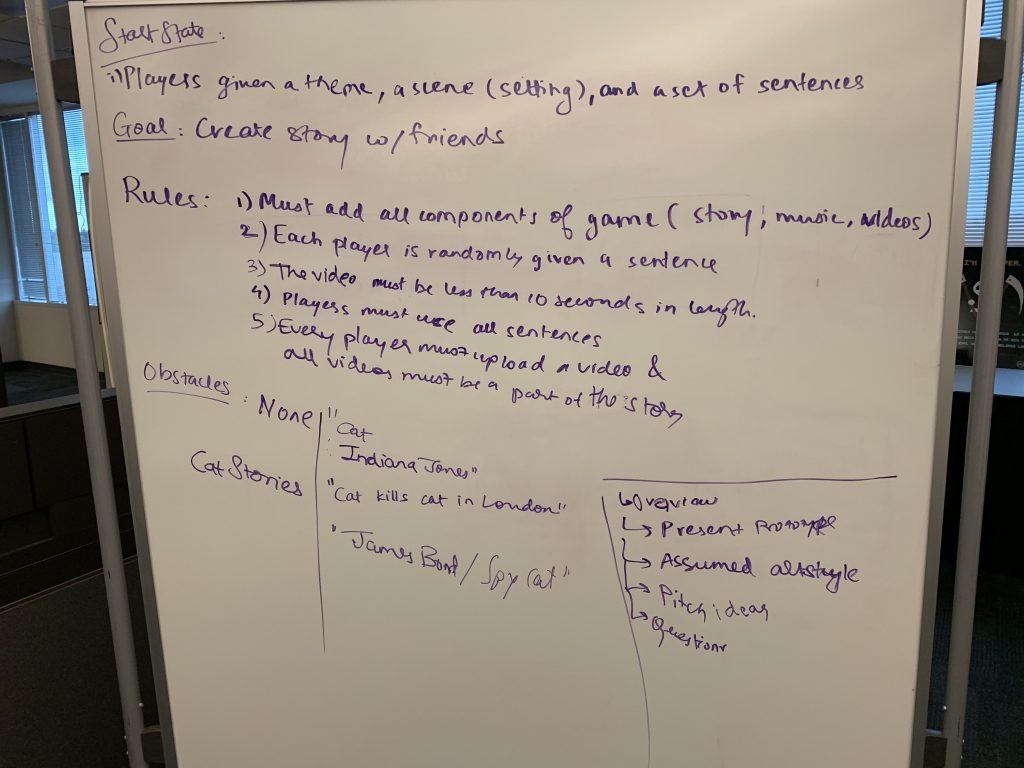 Start State:
1) Players given a theme, a scene (setting), and a set of sentences
Goal: Create story w/ friends
Rules: 1) Must add all components of game (story, music, videos)
2) Each player is randomly given a sentence
3) The video must be less than 10 seconds in length.
4) Players must use all sentences
5) Every player must upload a video &
all videos must be a part of the story
Obstacles: None
Cat Stories
"Cat
Indiana Jones"
"Cat kills cat in London"
"James Bond / Spy Cat"
Overview
Present Prototype
Assumed artstyle
Pitch ideas
Questions